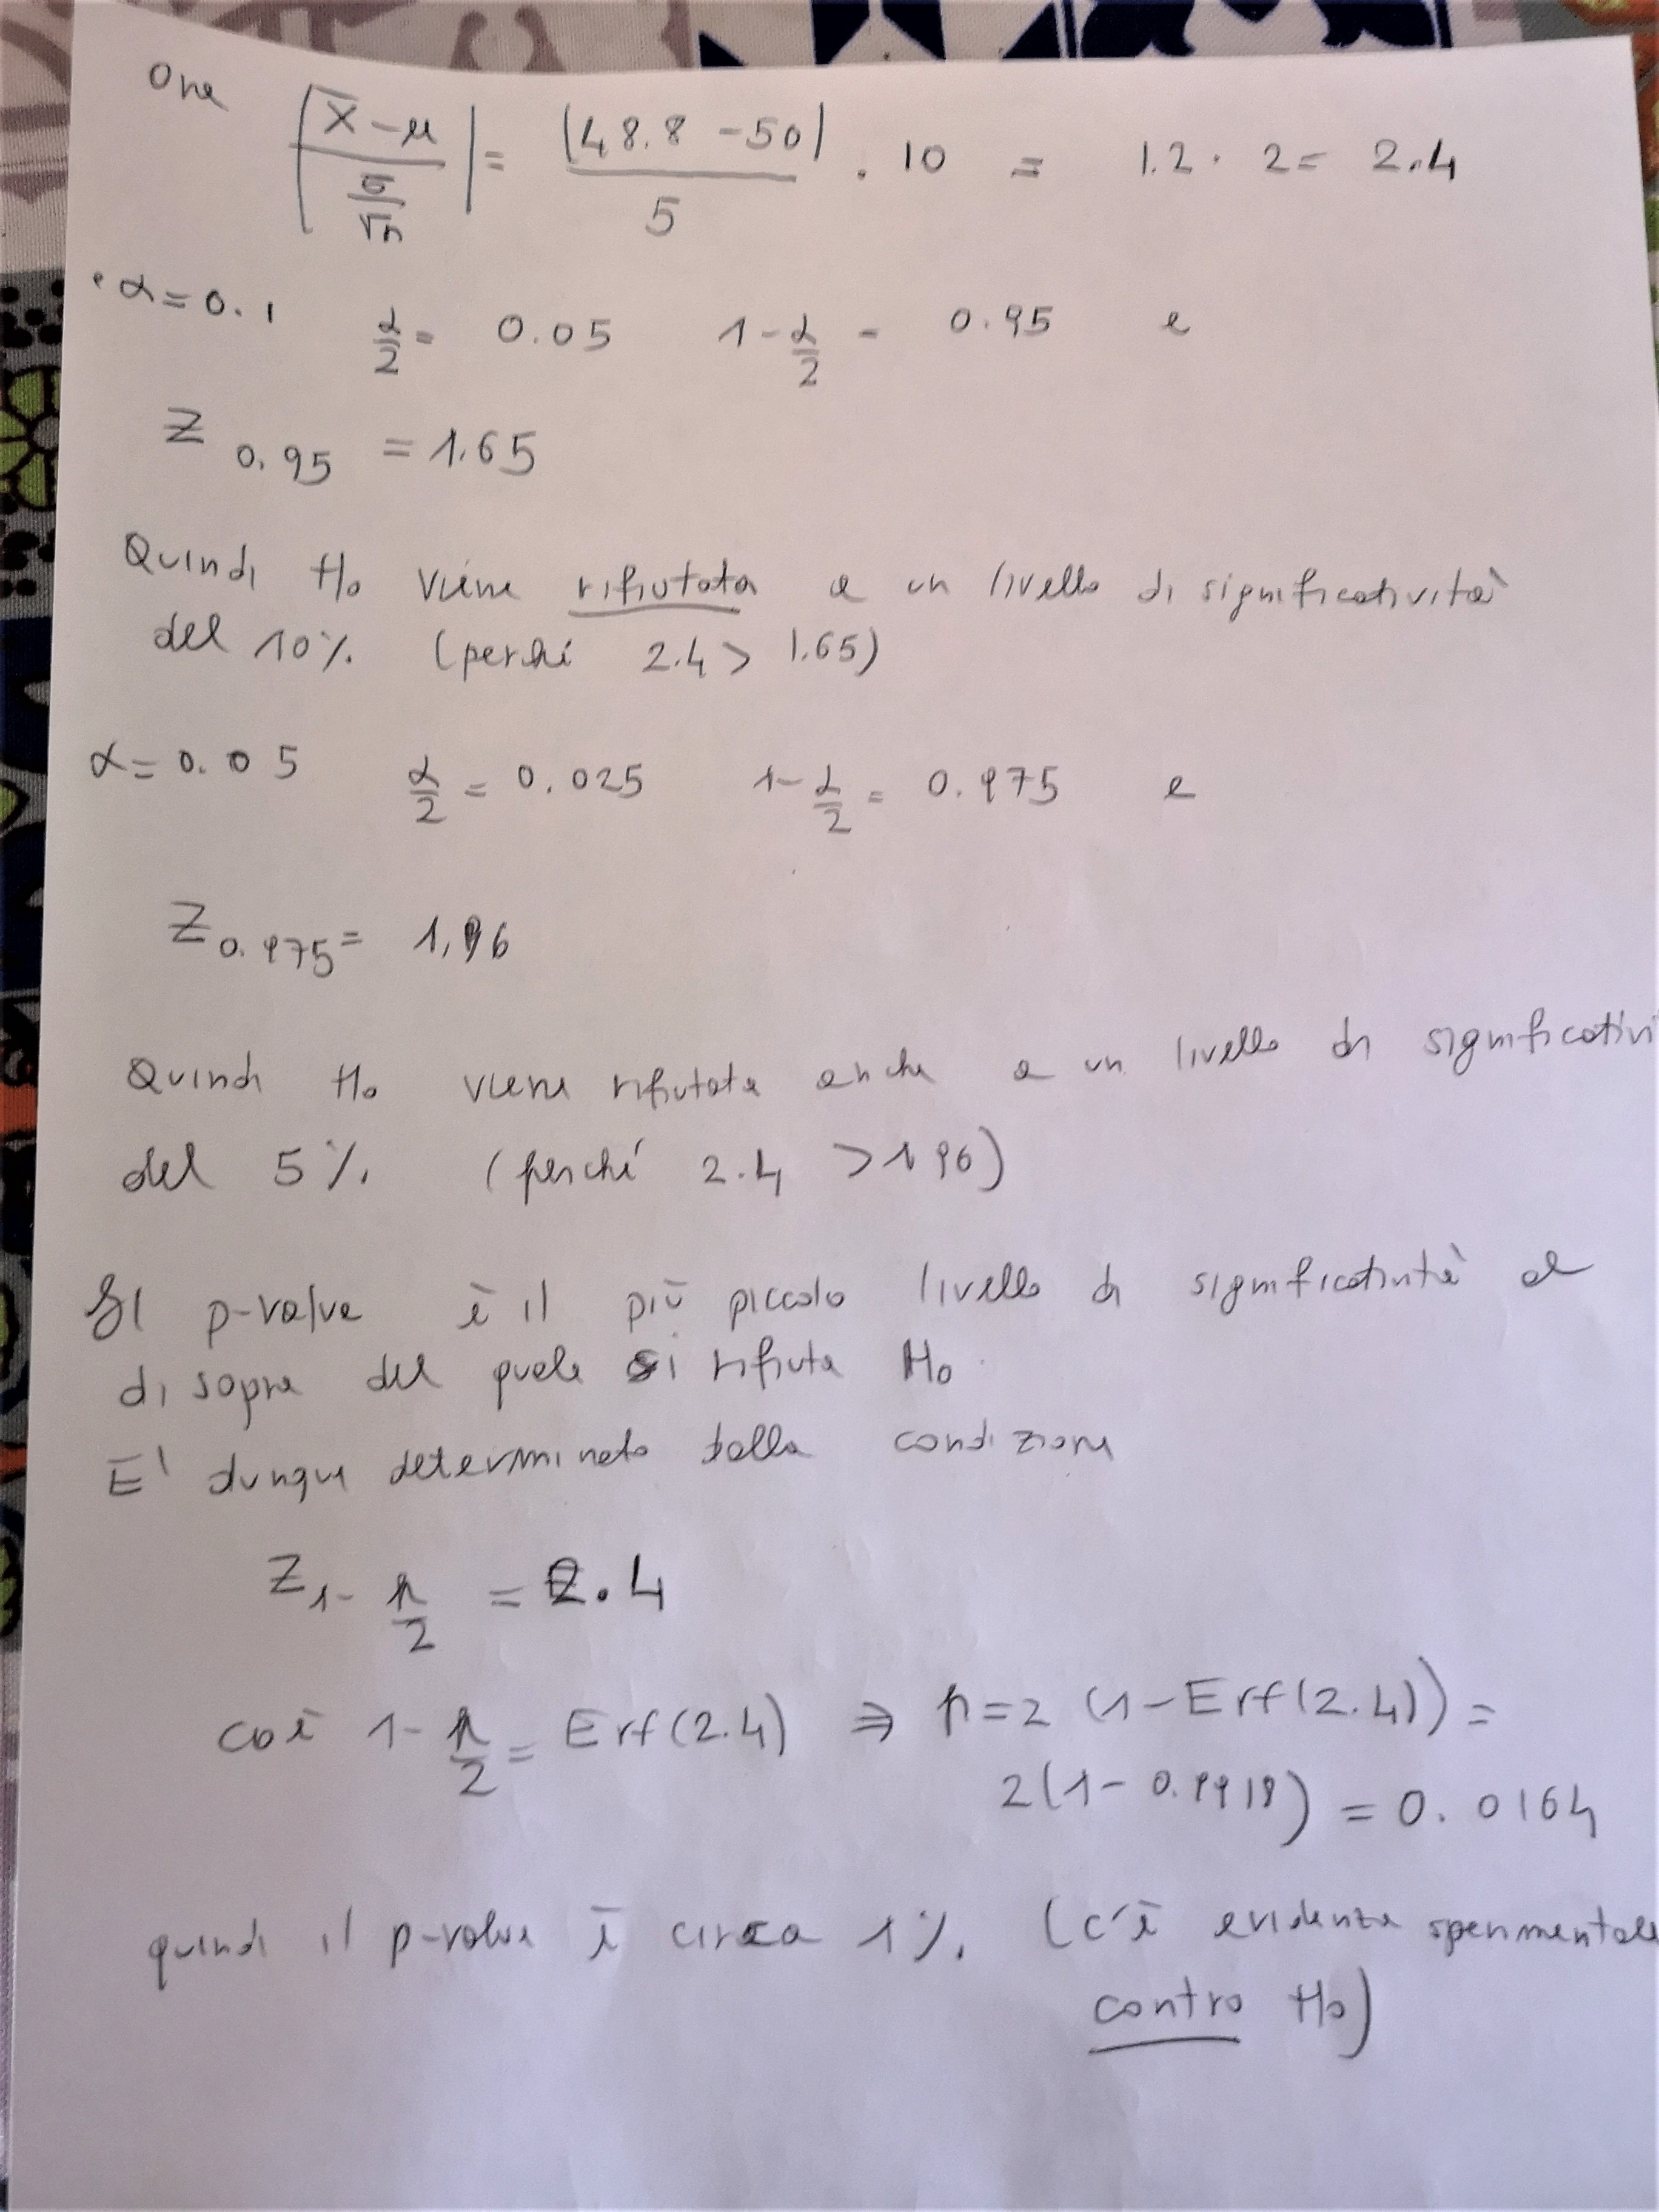 Ora |(X̄ - μ)/(σ/√n)| = |48.8 - 50|/5 · 10 = 1.2 · 2 = 2.4
· α = 0.1 α/2 = 0.05 1 - α/2 = 0.95 e
Z 0.95 = 1.65
Quindi H₀ viene rifiutata a un livello di significatività
del 10% (perché 2.4 > 1.65)
α = 0.05 α/2 = 0.025 1 - α/2 = 0.975 e
Z 0.975 = 1,96
Quindi H₀ viene rifiutata anche a un livello di significativi
del 5% (perché 2.4 > 1 96)
Il p-value è il più piccolo livello di significatività al
di sopra del quale si rifiuta H₀.
E' dunque determinato dalla condizione
Z 1 - p/2 = 2.4
cioè 1 - p/2 = Erf(2.4) ⇒ p = 2 (1 - Erf(2.4)) =
2(1 - 0.9918) = 0.0164
quindi il p-value è circa 1%. (c'è evidenza sperimentale
contro H₀)